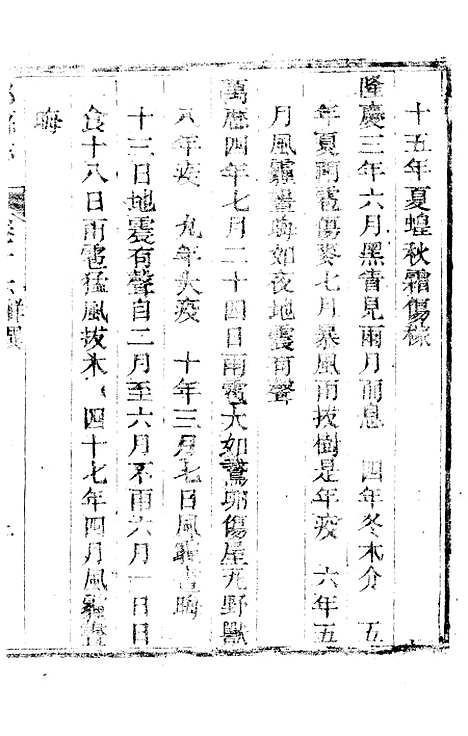 十五年夏蝗秋霜傷稼
隆慶三年六月黑眚見兩月而息　四年冬木介　五
年夏雨雹傷麥七月暴風雨拔樹是年疫　六年五
月風霾晝晦如夜地震有聲
萬曆四年七月二十四日雨雹大如鵞卵傷屋死野獸
八年疫　九年大疫　十年三月七日風霾晝晦
十三日地震有聲自二月至六月不雨六月一日日
食十八日雨雹猛風拔木　四十七年四月風霾晝
晦